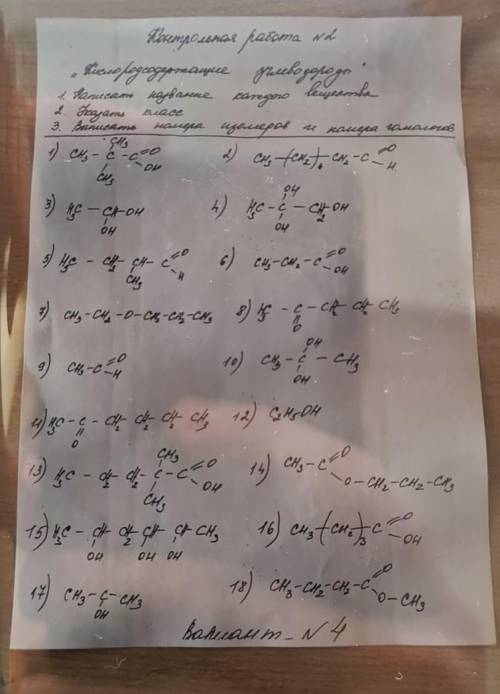 Контрольная работа №2
"Кислородсодержащие углеводороды"
1. Написать название каждого вещества
2. Указать класс
3. Выписать номера изомеров и номера гомологов
1) CH3-C(CH3)(CH3)-C(=O)OH 2) CH3-(CH2)4-CH2-C(=O)H
3) H3C-CH(OH)OH 4) H3C-C(OH)(OH)-CH2OH
5) H3C-CH2-CH(CH3)-C(=O)H 6) CH3-CH2-C(=O)OH
7) CH3-CH2-O-CH2-CH2-CH3 8) H3C-C(=O)-CH2-CH2-CH3
9) CH3-C(=O)H 10) CH3-C(OH)(OH)-CH3
11) H3C-C(=O)-CH2-CH2-CH2-CH3 12) C2H5OH
13) H3C-CH2-CH2-C(CH3)(CH3)-C(=O)OH 14) CH3-C(=O)O-CH2-CH2-CH3
15) H3C-CH(OH)-CH2-CH(OH)-CH(OH)-CH3 16) CH3-(CH2)3-C(=O)OH
17) CH3-C(OH)-CH3 18) CH3-CH2-CH2-C(=O)O-CH3
Вариант-№4